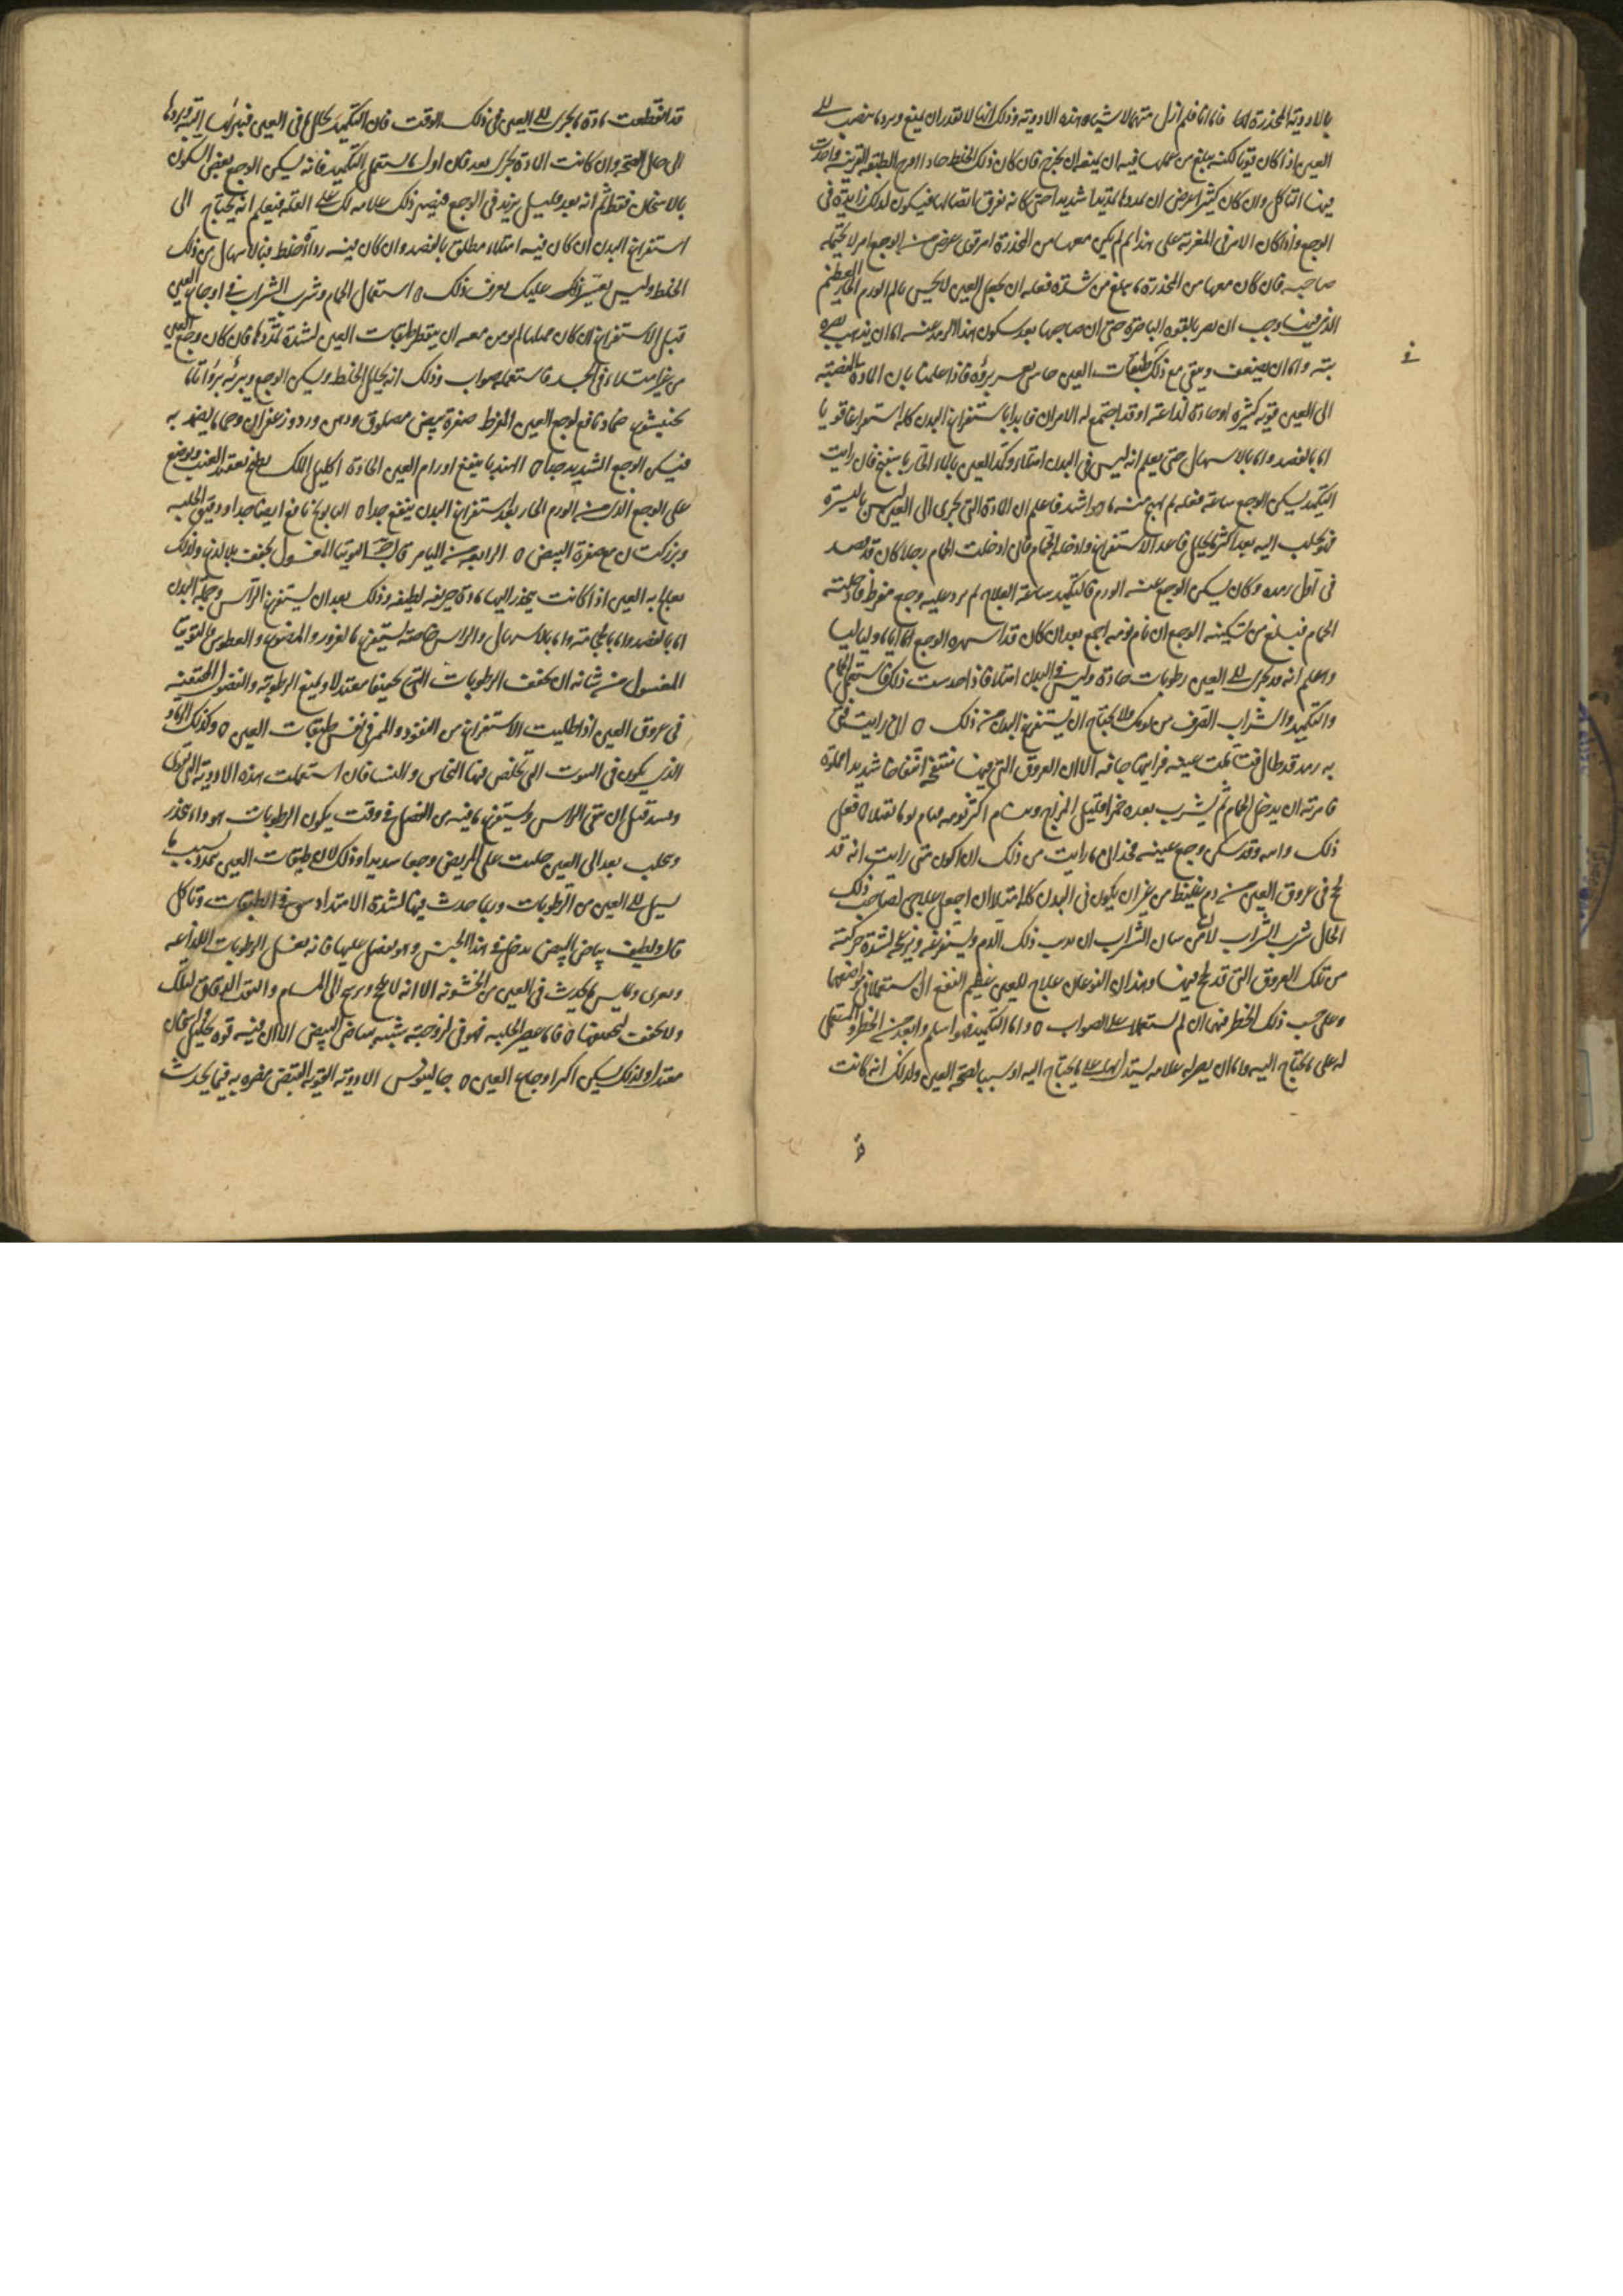 بالادوية المخدرة اما فاما انا فلم ازل متهما لاشياه هذه الادوية وذلك انها لا تقدر ان يمنع ويرد ما ينصب الى
العين اذا كان قويا لكنه يبلغ من عملها فيه ان يمنعه ان يخرج فان كان ذلك الخلط حادا اقرح الطبقة القرنية واحدث
فيها التاكل وان كان كثيرا عرض ان يمددها تمديدا شديدا حتى كانه يفرق اتصالها فيكون لذلك زايدة في
الوجع واذا كان الامر في المغرية على هذا ثم لم يكن معها من المخدرة امر قوى عرض من الوجع امر لا يحتمله
صاحبه فان كان معها من المخدرة ما يبلغ من شدة فعله ان يجعل العين لا يحس بالم الورم الحار العظيم
الذي فيها وجب ان يضر بالقوة الباصرة حتى ان صاحبها بعد سكون هذا الرمد عنه اما ان يذهب بصره
بتة واما ان يضعف ويبقى مع ذلك في طبقات العين جاس يعسر برؤه فاذا علمنا بان المادة المنصبة
الى العين قوية كثيرة او حادة لذاعة او قد اجتمع له الامران فابدا باستفراغ البدن كله استفراغا قويا
اما بالفصد واما بالاسهال حتى يعلم انه ليس في البدن امتلاء وكمد العين بالماء الحار باسفنج فان رايت
التكميد يسكن الوجع ساعة فعله ثم يهيج منه ما هو اشد فاعلم ان المادة التي تجرى الى العين ليس باليسيرة
فهو يجلب اليه بعد اكثر مما يحلل فاعد الاستفراغ وادخله الحمام فان ادخلت الحمام رجلا كان قد رمد
في اول رمده وكان يسكن الوجع عنه الورم فالتكميد ساعة العلاج ثم يرد عليه وجع مفرط فادخلته
الحمام فبلغ من تسكينه الوجع ان نام نومه اجمع بعد ان كان قد اسهره الوجع اياما وليالى
واعلم انه قد يجرى الى العين رطوبات حادة وليس في البدن امتلاء فاذا حدست ذلك فاستعمل الحمام
والتكميد والشراب الصرف من يومك ولا يحتاج ان يستفرغ البدن من ذلك ه انى رايت فتى
به رمد قد طال فتاملت عينه فرايتها جافة الا ان العروق التي فيها منتفخة انتفاخا شديدا مملوة
فامرته ان يدخل الحمام ثم يشرب بعده خمرا قليل المزاج وينام اكثر نومه فنام نوما ثقيلا لما فعل
ذلك وانتبه وقد سكن وجع عينه فهدانى ما رايت من ذلك ان اكون متى رايت انه قد
لحج في عروق العين من دم غليظ من غير ان يكون في البدن كله امتلاء ان اجعل علاجى لصاحب ذلك
الحال شرب الشراب لان من شان الشراب ان يذيب ذلك الدم ويستفرغه ويزعجه لشدة حركته
من تلك العروق التي قد لحج فيها وهذان النوعان علاج للعين عظيم النفع ان استعملا في مواضعهما
وعلى حسب ذلك الخطر فيهما ان لم يستعملا على الصواب ه واما التكميد فهو اسلم وابعد من الخطر والمستعمل
له على ما يحتاج اليه واما ان يصير له علامة يستدل بها على ما يحتاج اليه او سببا لصحة العين وذلك انه كانت
قد انقطعت مادة ما يجرى الى العين في ذلك الوقت فان التكميد يحلل ما في العين فيبرئها البتة ويردها
الى حال الصحة وان كانت المادة تجرى بعد فان اول ما يستعمل التكميد فانه يسكن الوجع بعض السكون
بالاسخان فقط ثم انه بعد قليل يزيد في الوجع فيصير ذلك علامة لك على العلة فيعلم انه يحتاج الى
استفراغ البدن ان كان فيه امتلاء مطلق بالفصد وان كان فيه رداءة خلط فبالاسهال من ذلك
الخلط وليس يعسر ذلك عليك تعرف ذلك ه استعمال الحمام وشرب الشراب في اوجاع العين
قبل الاستفراغ ان كان ممتليا لم يومن معه ان يتقطر طبقات العين لشدة تمددها فان كان وجع العين
من غير امتلاء في الجسد فاستعماله صواب وذلك انه يحلل الخلط ويسكن الوجع ويبرئه برؤا تاما
بختيشوع ضماد نافع لوجع العين المفرط صفرة بيض مصلوق ودهن ورد وزعفران ورجما يضمد به
فيسكن الوجع الشديد جدا ه الهندبا ينفع اورام العين الحادة اكليل الملك يطبخ بعقيد العنب ويوضع
على الوجع الذي من الورم الحار بعد استفراغ البدن ينفع جدا ه البابونج نافع ايضا جدا ودقيق الحلبة
وبزر كتان مع صفرة البيض ه الرابعة من الميامر قال التوتيا المغسول يجفف بلا لذع ولذلك
يعالج به العين اذا كانت ينحدر اليها مادة حريفة لطيفة وذلك بعد ان يستفرغ الراس وجملة البدن
اما بالفصد واما بالحجامة واما بالاسهال والراس خاصة يستفرغ بالغرور والمضوغ والعطوس فالتوتيا
المغسول من شانه ان يجفف الرطوبات التي تجفيفا معتدلا ويمنع الرطوبة والفضول المحتقنة
في عروق العين اذا طلبت الاستفراغ من النفوذ والممر في نفس طبقات العين ه وكذلك الرماد
الذي يكون في البيوت التي يخلص فيها النحاس والنسا فان استعملت هذه الادوية التي تغرى
وتسدد قبل ان تنقى الراس ويستفرغ ما فيه من الفضل في وقت يكون الرطوبات هوذا ينحدر
ويجلب بعد الى العين جلبت على المريض وجعا شديدا وذلك لان طبقات العين تمدد بسبب ما
يسيل الى العين من الرطوبات وربما حدث فيها لشدة الامتداد شق في الطبقات وتاكل
قال ولطيف بياض البيض يدخل في هذا الجنس وهو يفضل عليها فانه يغسل الرطوبات اللذاعة
ويغرى ويملس ما يحدث في العين من الخشونة الا انه لا يلحج ويرسخ الى المسام والثقب الدقاق لتلك
ولا يجفف تجفيفها ه فاما عصير الحلبة فهو في لزوجته شبيه ببياض البيض الا ان فيه قوة تحليل واسخان
معتدل ولذلك يسكن اكثر اوجاع العين ه جالينوس الادوية القوية القبض مضرة به فيما يحدث